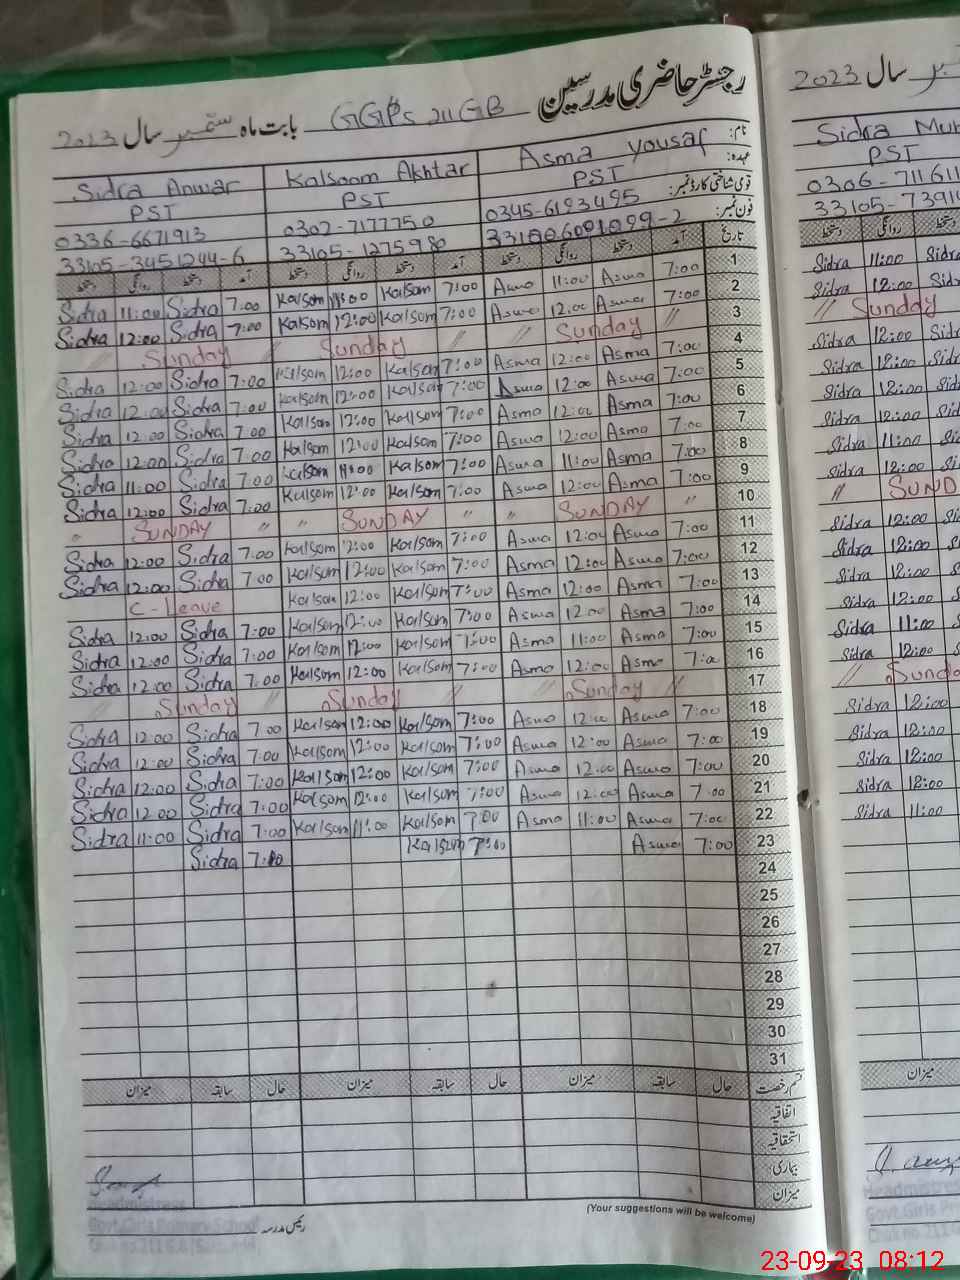 رجسٹر حاضری مدرسین GGPS 211 GB بابت ماہ ستمبر سال 2023
نام: Asma yousaf Kalsoom Akhtar Sidra Anwar
عہدہ: PST PST PST
قومی شناختی کارڈ نمبر: 0345-6193495 0302-7177750 0336-6671913
فون نمبر: 33105-1275980 33105-3451244-6
تاریخ آمد دستخط روانگی دستخط آمد دستخط روانگی دستخط آمد دستخط روانگی دستخط
Sidra 11:00 Sidra 7:00 Kalsom 11:00 Kalsom 7:00 Asma 11:00 Asma 7:00 1
Sidra 12:00 Sidra 7:00 Kalsom 12:00 Kalsom 7:00 Asma 12:00 Asma 7:00 2
// Sunday // Sunday // // Sunday // 3
Sidra 12:00 Sidra 7:00 Kalsom 12:00 Kalsom 7:00 Asma 12:00 Asma 7:00 4
Sidra 12:00 Sidra 7:00 Kalsom 12:00 Kalsom 7:00 Asma 12:00 Asma 7:00 5
Sidra 12:00 Sidra 7:00 Kalsom 12:00 Kalsom 7:00 Asma 12:00 Asma 7:00 6
Sidra 12:00 Sidra 7:00 Kalsom 12:00 Kalsom 7:00 Asma 12:00 Asma 7:00 7
Sidra 11:00 Sidra 7:00 Kalsom 11:00 Kalsom 7:00 Asma 11:00 Asma 7:00 8
Sidra 12:00 Sidra 7:00 Kalsom 12:00 Kalsom 7:00 Asma 12:00 Asma 7:00 9
" SUNDAY " " SUNDAY " " SUNDAY " 10
Sidra 12:00 Sidra 7:00 Kalsom 12:00 Kalsom 7:00 Asma 12:00 Asma 7:00 11
Sidra 12:00 Sidra 7:00 Kalsom 12:00 Kalsom 7:00 Asma 12:00 Asma 7:00 12
C-Leave Kalsom 12:00 Kalsom 7:00 Asma 12:00 Asma 7:00 13
Sidra 12:00 Sidra 7:00 Kalsom 12:00 Kalsom 7:00 Asma 12:00 Asma 7:00 14
Sidra 12:00 Sidra 7:00 Kalsom 12:00 Kalsom 7:00 Asma 11:00 Asma 7:00 15
Sidra 12:00 Sidra 7:00 Kalsom 12:00 Kalsom 7:00 Asma 12:00 Asma 7:00 16
// Sunday // Sunday // // Sunday // 17
Sidra 12:00 Sidra 7:00 Kalsom 12:00 Kalsom 7:00 Asma 12:00 Asma 7:00 18
Sidra 12:00 Sidra 7:00 Kalsom 12:00 Kalsom 7:00 Asma 12:00 Asma 7:00 19
Sidra 12:00 Sidra 7:00 Kalsom 12:00 Kalsom 7:00 Asma 12:00 Asma 7:00 20
Sidra 12:00 Sidra 7:00 Kalsom 12:00 Kalsom 7:00 Asma 12:00 Asma 7:00 21
Sidra 11:00 Sidra 7:00 Kalsom 11:00 Kalsom 7:00 Asma 11:00 Asma 7:00 22
Sidra 7:00 Kalsum 7:00 Asma 7:00 23
24
25
26
27
28
29
30
31
قسم رخصت حال سابقہ میزان حال سابقہ میزان حال سابقہ میزان
اتفاقیہ
استحقاقیہ
بیماری
میزان
(Your suggestions will be welcome)
رئیس مدرسہ
Headmistress
Govt. Girls Primary School
Chak no. 211 G.B
سال 2023
Sidra
PST
0306-71161
33105-7391
روانگی دستخط
Sidra 11:00 Sidra
Sidra 12:00 Sidra
// Sunday
Sidra 12:00
Sidra 12:00
Sidra 12:00
Sidra 12:00
Sidra 11:00
Sidra 12:00
// SUND
Sidra 12:00
Sidra 12:00
Sidra 12:00
Sidra 12:00
Sidra 11:00
Sidra 12:00
// Sund
Sidra 12:00
Sidra 12:00
Sidra 12:00
Sidra 12:00
Sidra 11:00
میزان
Headmistress
Govt. Girls
Chak no. 211
23-09-23 08:12